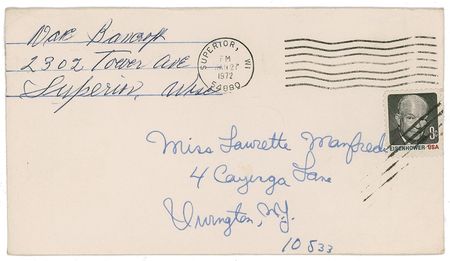 Dave Bancroft
2302 Tower Ave
Superior, Wisc
SUPERIOR, WI
PM
1972
54880
8c
EISENHOWER·USA
Miss Laurette Manfredi
4 Cayuga Lane
Irvington, N.Y.
10533